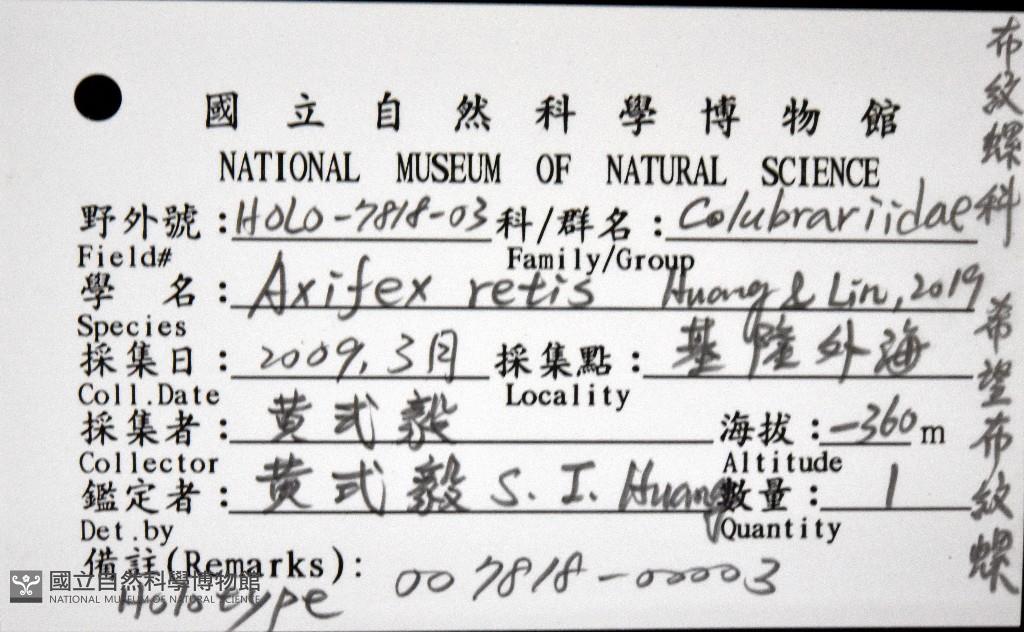 國立自然科學博物館
NATIONAL MUSEUM OF NATURAL SCIENCE
野外號：HOLO-7818-03 科/群名：Colubrariidae
Field# Family/Group
學 名：Axifex retis Huang & Lin, 2019
Species
採集日：2009, 3月 採集點：基隆外海
Coll.Date Locality
採集者：黄式毅 海拔：-360 m
Collector Altitude
鑑定者：黄式毅 S. I. Huang 數量：1
Det.by Quantity
備註(Remarks): 007818-00003
Holotype
布紋螺科
希望布紋螺
國立自然科學博物館
NATIONAL MUSEUM OF NATURAL SCIENCE